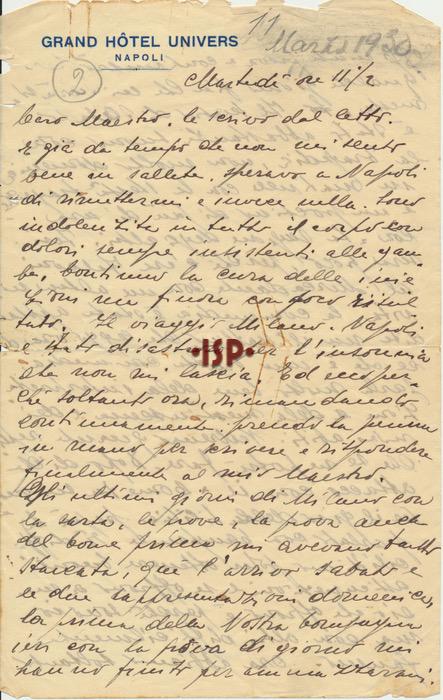 11
Marzo 1930
GRAND HÔTEL UNIVERS
NAPOLI
2
Martedì ore 11 1/2
Caro Maestro, le scrivo dal letto.
E già da tempo che non mi sento
bene in salute, speravo a Napoli
di rimettermi e invece nulla. Sono
indolenzita in tutto il corpo con
dolori sempre insistenti alle gam
be, continuo la cura delle inie
zioni ma finora con poco risul
tato. Il viaggio Milano-Napoli
è stato disastroso per l'insonnia
ISP
che non mi lascia. Ed ecco per
chè soltanto ora, rimandando
continuamente prendo la penna
in mano per scrivere e rispondere
finalmente al mio Maestro.
Gli ultimi giorni di Milano con
la sarta, le prove, la prova anche
del bome prima mi avevano tutta
staccata, qui l'arrivo sabato e
le due rappresentazioni domenica,
la prima della Vostra compagna
ieri con la prova di giorno mi
hanno finito per ammazzarmi.